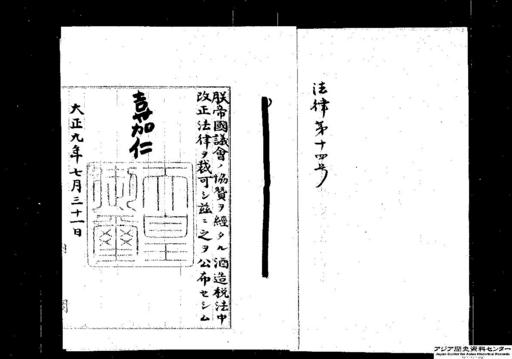 法律第十四号
朕帝國議會ノ協賛ヲ經タル酒造税法中
改正法律ヲ裁可シ茲ニ之ヲ公布セシム
嘉仁
天皇
御璽
大正九年七月三十一日
アジア歴史資料センター
Japan Center for Asian Historical Records